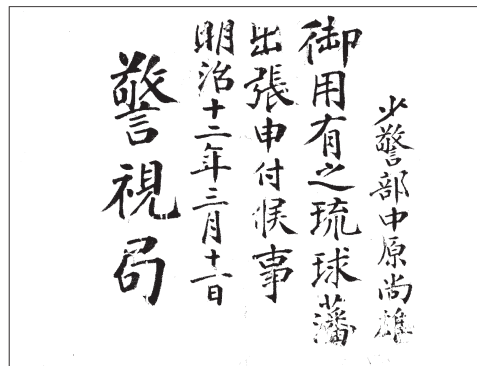 少警部中原尚雄
御用有之琉球藩
出張申付候事
明治十二年三月十一日
警視局